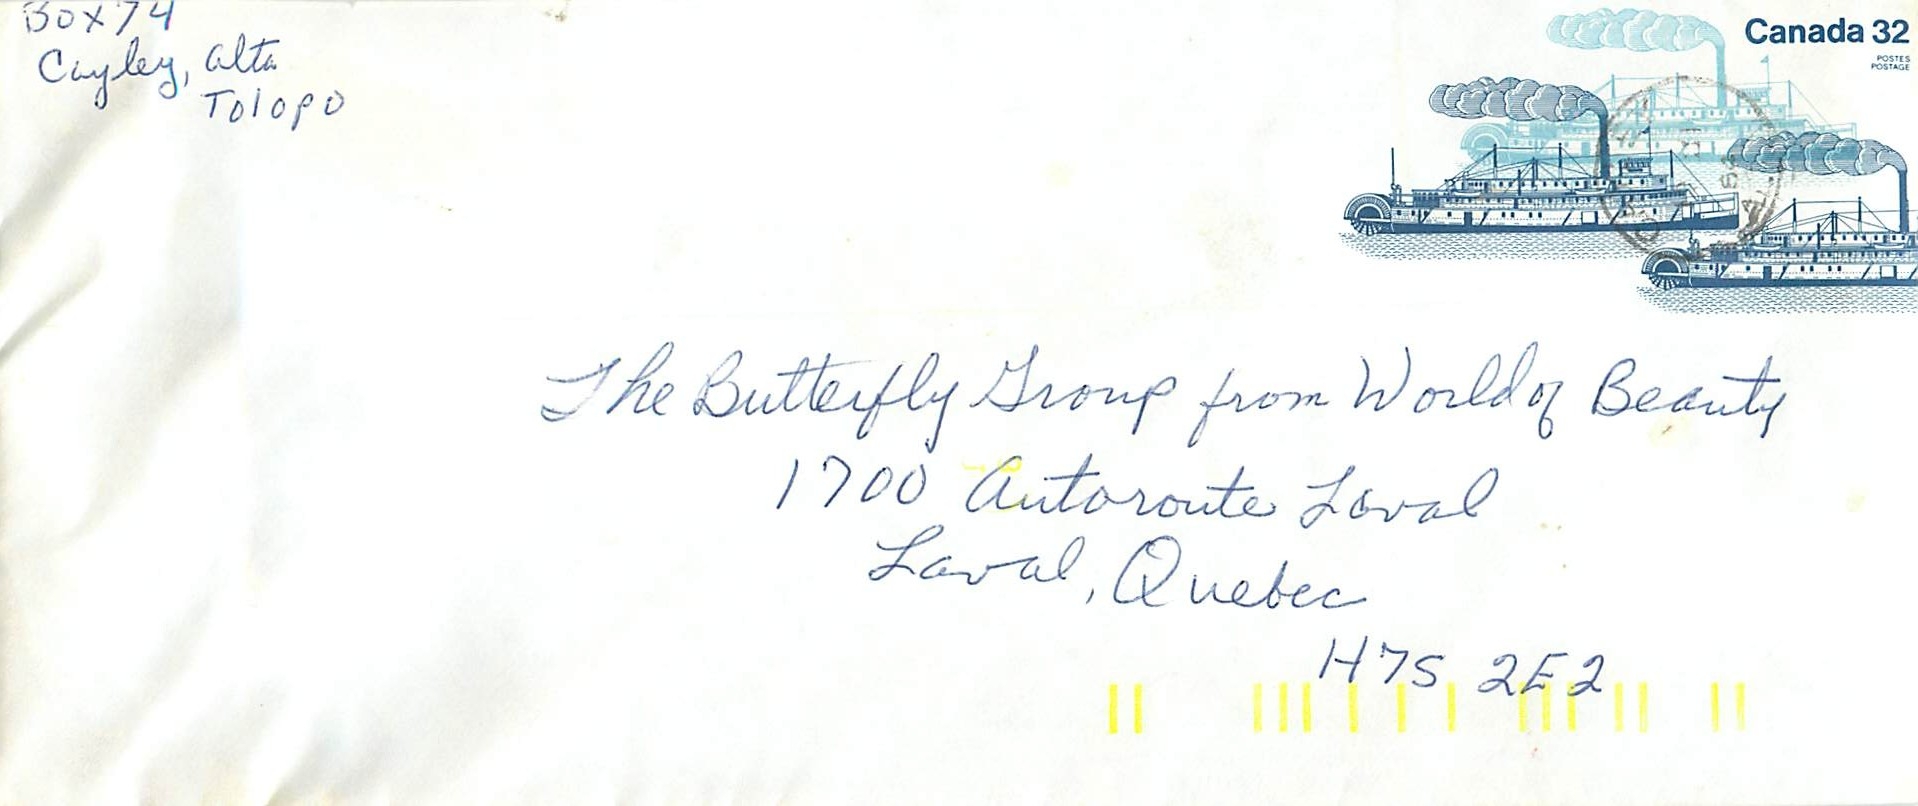 Box 74
Cayley, Alta
T0L 0P0
Canada 32
POSTES
POSTAGE
The Butterfly Group from World of Beauty
1700 Autoroute Laval
Laval, Quebec
H7S 2E2